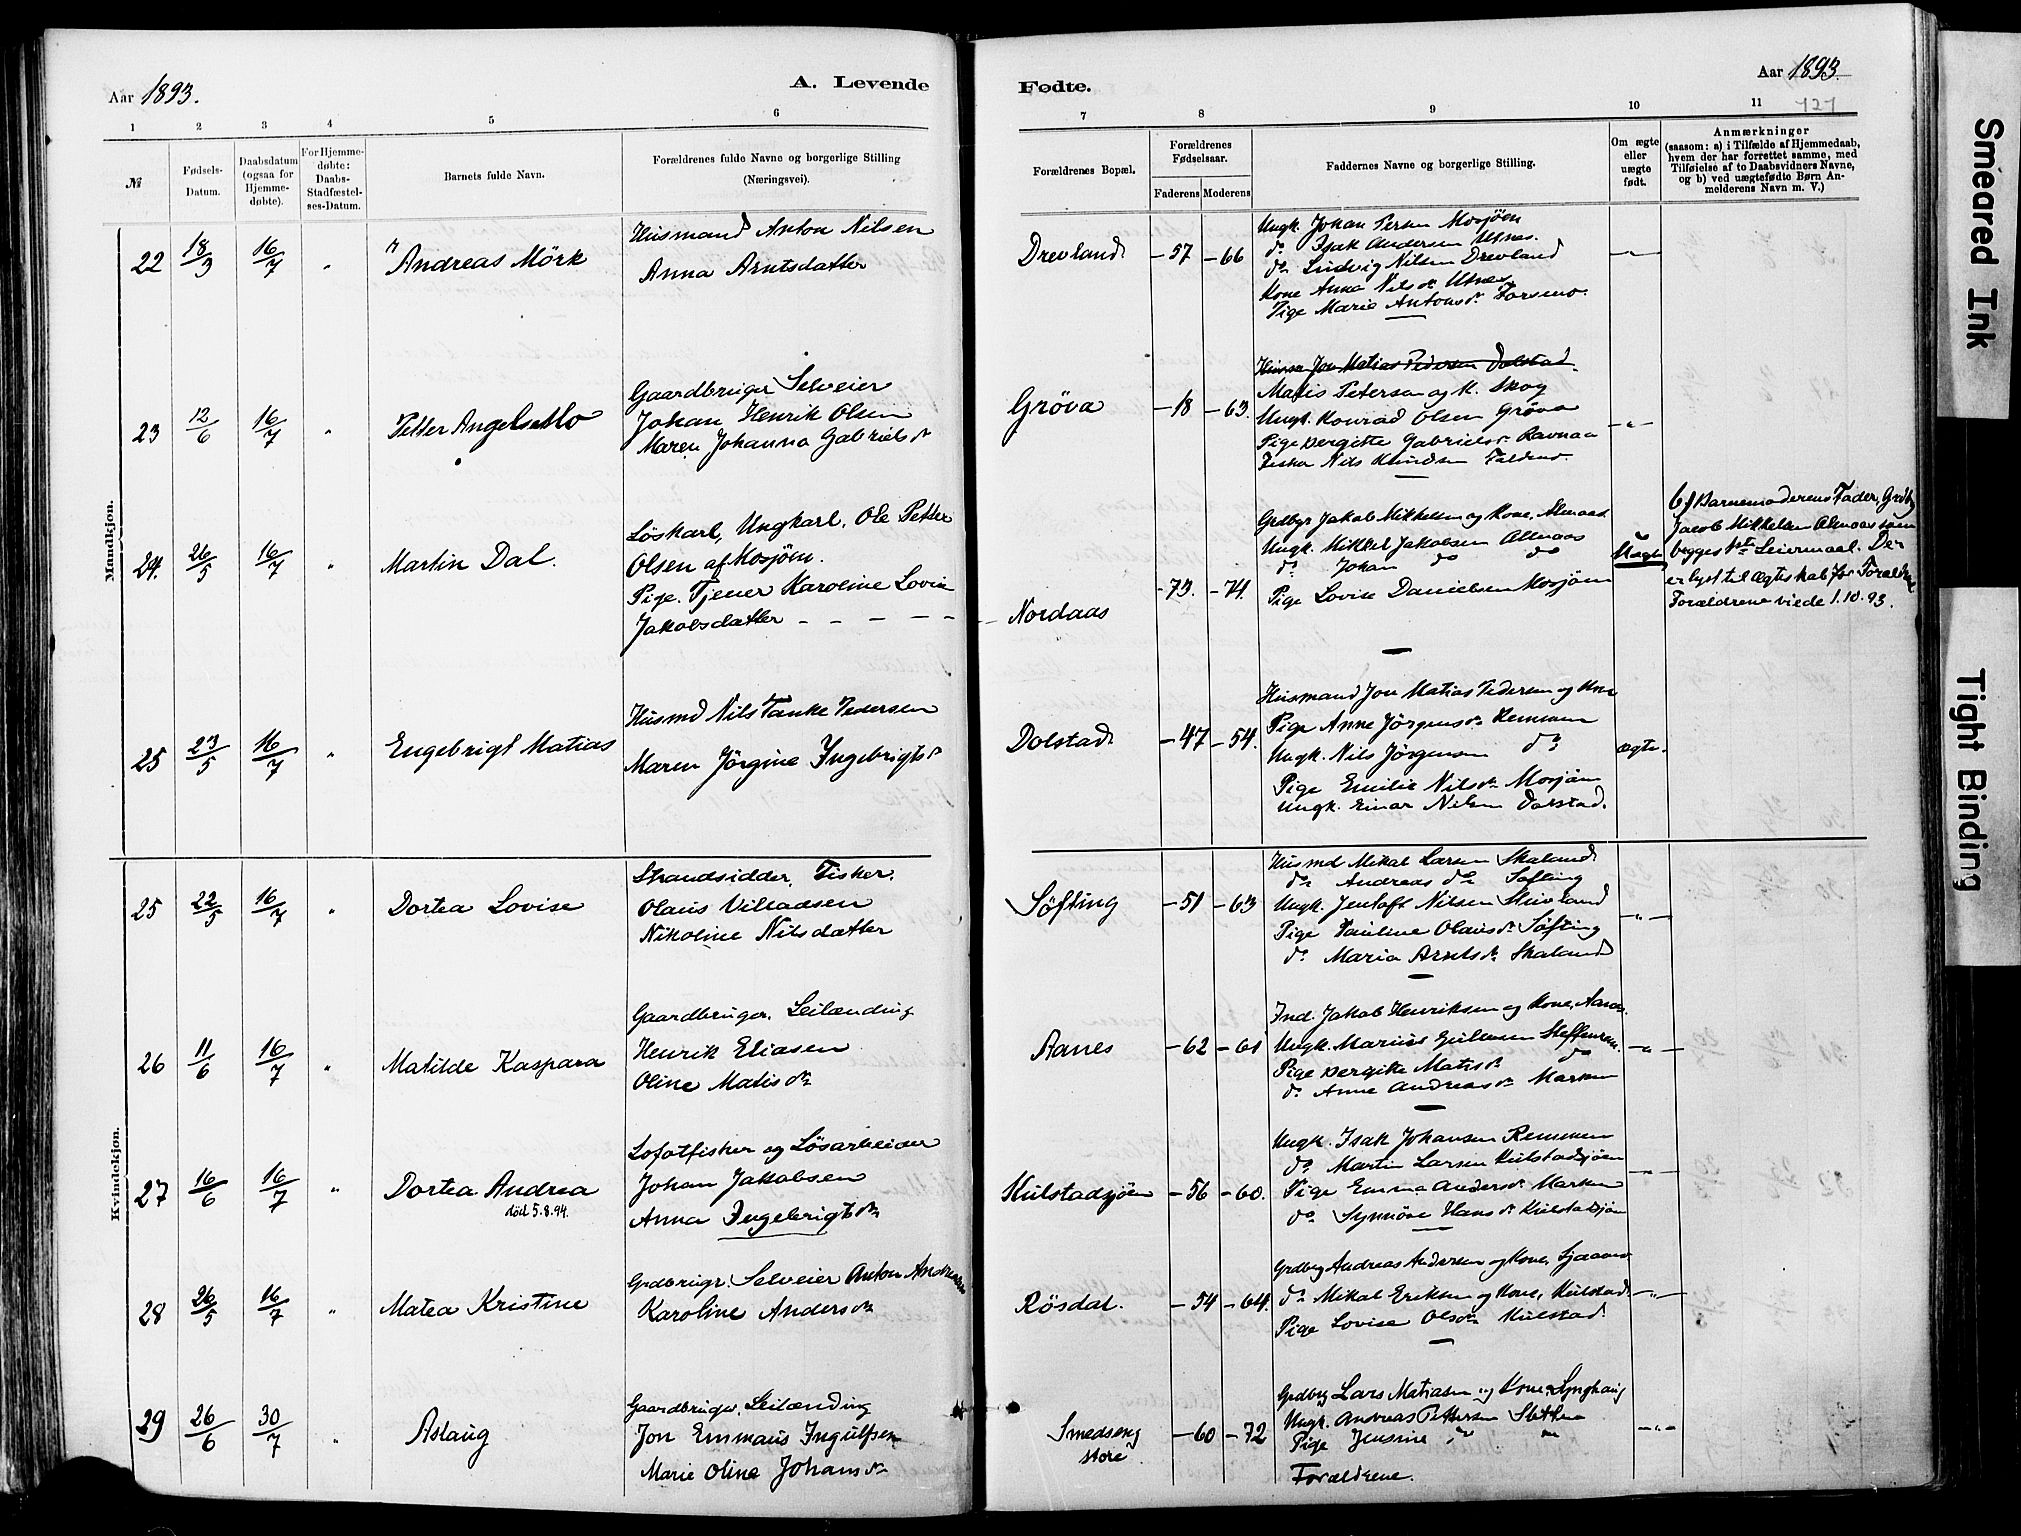 Aar 1893.
A. Levende
Fødte.
Aar 1893.
127
1 2 3 4 5 6
7 8 9 10 11
№
Fødsels-
Datum.
Daabsdatum
(ogsaa for
Hjemme-
døbte).
For Hjemme-
døbte:
Daabs-
Stadfæstel-
ses-Datum.
Barnets fulde Navn.
Forældrenes fulde Navne og borgerlige Stilling
(Næringsvei).
Forældrenes Bopæl.
Forældrenes
Fødselsaar.
Faderens Moderens
Faddernes Navne og borgerlige Stilling.
Om ægte
eller
uægte
født.
Anmærkninger
(saasom: a) i Tilfælde af Hjemmedaab,
hvem der har forrettet samme, med
Tilføielse af to Daabsvidners Navne,
og b) ved uægtefødte Børn An-
melderens Navn m. V.)
Mandkjøn.
22 18/3 16/7 " Andreas Mörk
Husmand Anton Nilsen
Anna Arntsdatter
Drevland -57 -66
Ungk. Johan Persen Mosjöen
do Isak Andersen Utnes.
do Ludvig Nilsen Drevland
Kone Anna Nilsdr Utnes
Pige Marie Antonsdr Forsmo.
—"—
23 12/6 16/7 " Petter Angelsetlo
Gaardbruger Selveier
Johan Henrik Olsen
Maren Johanna Gabrielsdr
Gröva -18 -63.
Jon Matias Pedersen Dolstad.
Matis Petersen og K. Skog
Ungk. Konrad Olsen Gröva
Pige Bergitte Gabrielsdr Ravnaa
Nils Knudsen
—"—
24. 26/5 16/7 " Martin Dal.
Löskarl, Ungkarl, Ole Petter
Olsen af Mosjöen.
Pige. Tjener Karoline Lovise
Jakobsdatter - - - - -
Nordaas -73. -74.
Grdbgr Jakob Mikkelsen og Kone,
Ungk. Mikkel Jakobsen
do Johan do do
Pige Lovise Danielsen Mosjöen
Uægte
b) Barnemoderens Fader, Grdbr
Jacob Mikkelsen som
begges 1ste Leiermaal. Der
er lyst til Ægteskab for Forældrene
Forældrene viede 1.10.93.
25 23/5 16/7 " Engebrigt Matias
Husmd Nils Tanke Pedersen
Maren Jörgine Ingebrigtsdr
Dolstad -47 -54.
Husmand Jon Matias Pedersen og Kone
Pige Anne Jörgensdr Remmen
Ungk. Nils Jörgensen do
Pige Emilie Nilsdr Mosjöen
Ungk. Einar Nilsen Dolstad.
ægte.
Kvindekjøn.
25 22/5 16/7 " Dortea Lovise
Strandsidder, Fisker.
Olaus Villadsen
Nikoline Nilsdatter
Söfting -51 -63
Husmd Mikal Larsen Skaland
do Andreas do Söfting
Ungk. Jentoft Nilsen
Pige Pauline Olausdr Söfting
do Maria Arntsdr Skaland
—"—
26 11/6 16/7 " Matilde Kaspara
Gaardbruger. Leilænding
Henrik Eliasen
Oline Matisdr
Aanes -62 -61
Ind. Jakob Henriksen og Kone, Aanes.
Ungk. Marius
Pige Bergitte Matisdr do
do Anne Andreasdr Marken
—"—
27 16/6 16/7 " Dortea Andrea
död 5.8.94.
Lofotfisker og Lösarbeider
Johan Jakobsen
Anna Ingebrigtsdr
Kulstadsjöen -56 -60.
Ungk. Isak Johansen Remmen
do Martin Larsen Kulstadsjöen
Pige Emma Andersdr Marken
do Synnöve Hansdr Kulstadsjöen
—"—
28 26/5 16/7 " Matea Kristine
Grdbrugr. Selveier Anton Andreassen
Karoline Andersdr
Rösdal. -54 -64.
Grdbrg Andreas Andersen og Kone,
do Mikal Eriksen og Kone, Kulstad
Pige Lovise Olsdr Kulstad.
—"—
29 26/6 30/7 " Aslaug
Gaardbruger. Leilænding
Jon Emmaus Ingulfsen
Marie Oline Johansdr
Smedseng
store -60 -72
Grdbrg Lars Matiasen og Kone, Lynghaug
Ungk. Andreas Pettersen
Pige Jensine " "
Forældrene.
—"—
Smeared Ink
Tight Binding